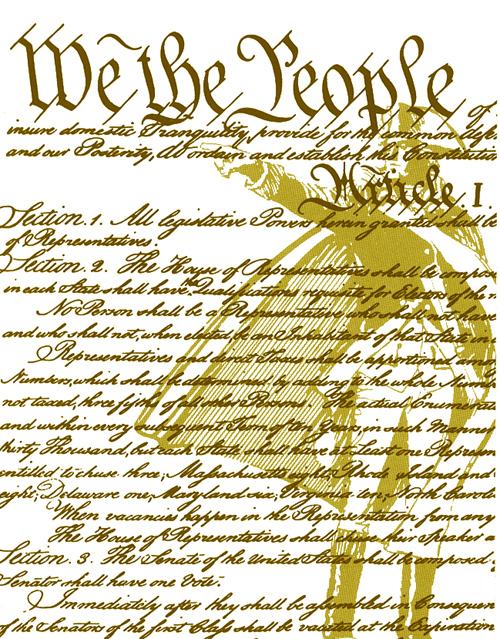 We the People of
insure domestic Tranquility, provide for the common defe
and our Posterity, do ordain and establish this Constitutio
Article I.
Section. 1. All legislative Powers herein granted shall
of Representatives.
Section. 2. The House of Representatives shall be compos
in each State shall have the Qualifications requisite for Electors of the
No Person shall be a Representative who shall not have
and who shall not, when elected, be an Inhabitant of that State in
Representatives and direct Taxes shall be apportioned amon
Numbers, which shall be determined by adding to the whole Numb
not taxed, three fifths of all other Persons. The actual Enumera
and within every subsequent Term of ten Years, in such Manner
thirty Thousand, but each State shall have at Least one Represen
entitled to chuse three, Massachusetts eight, Rhode Island and
eight, Delaware one, Maryland six, Virginia ten, North Carol
When vacancies happen in the Representation from any
The House of Representatives shall chuse their Speaker a
Section. 3. The Senate of the United States shall be composed
Senator shall have one Vote.
Immediately after they shall be assembled in Consequen
of the Senators of the first Class shall be vacated at the Expiration